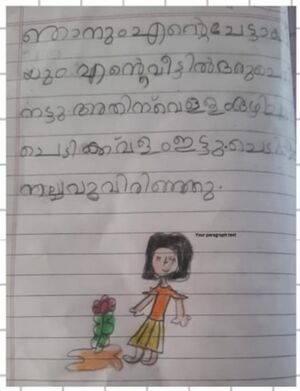 ഞാനും എന്റെ ചേട്ടാ
യും എന്റെ വീട്ടിൽ ഒരു ചെ
നട്ടു അതിന് വെള്ളം ഒഴി
ചെടിക്ക് വളം ഇട്ടു. ചെടി
നല്ല പൂവ് വിരിഞ്ഞു.
Your paragraph text